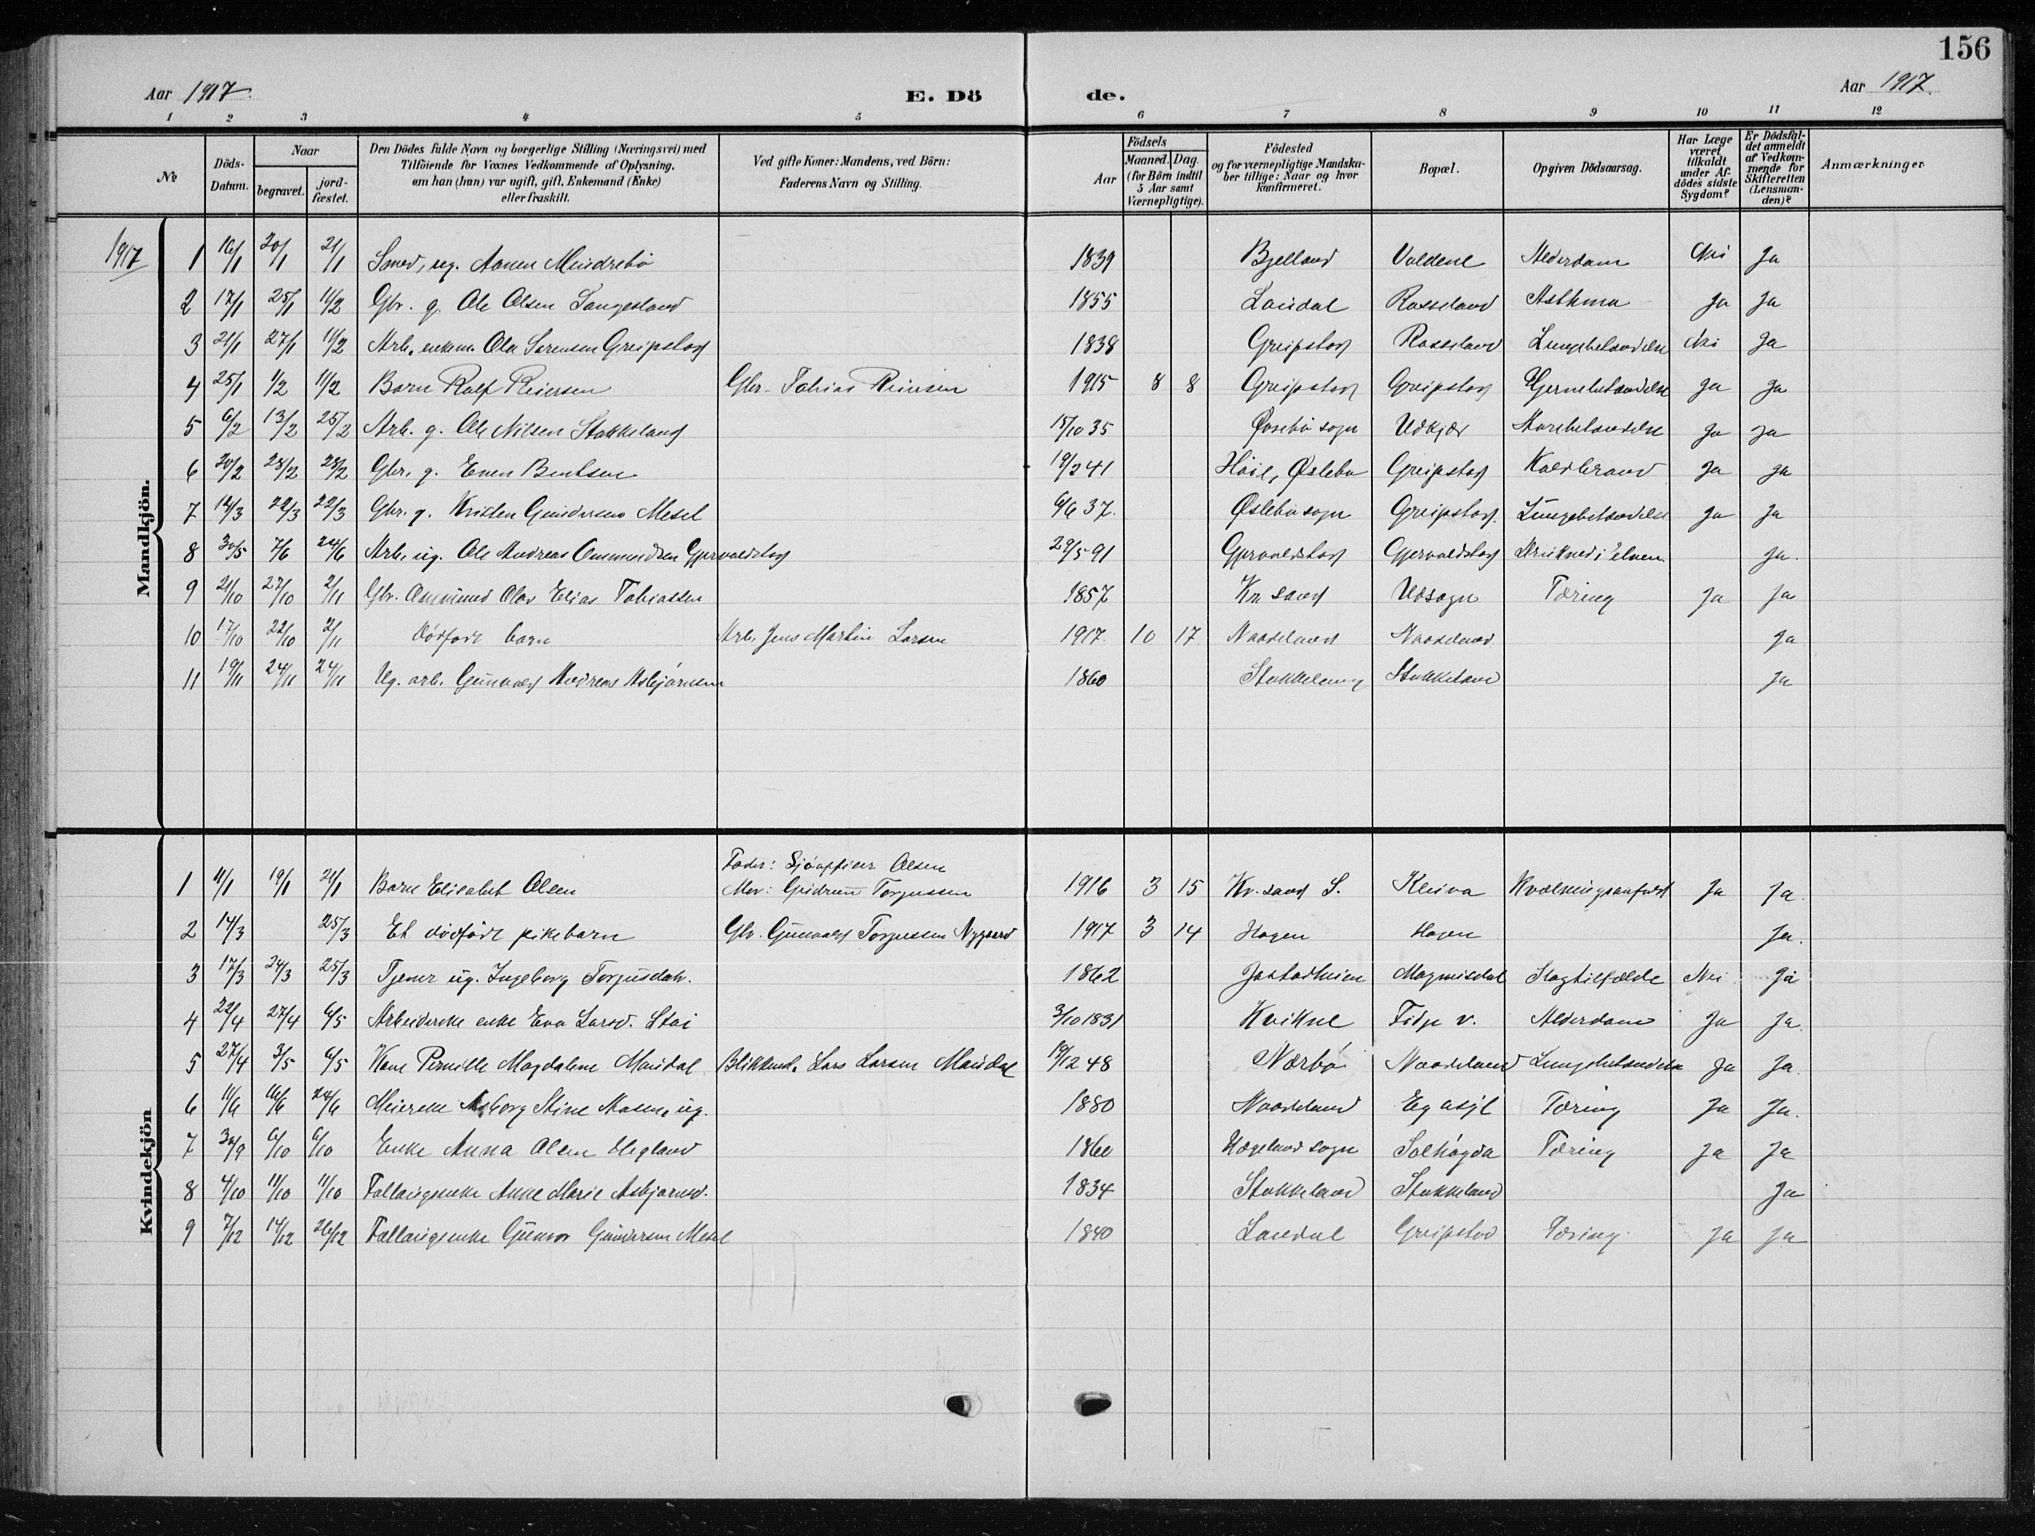 156
Aar 1917. E. Dö de. Aar 1917.
1 2 3 4 5 6 7 8 9 10 11 12
№ Döds-Datum. Naar begravet. jord-fæstet. Den Dödes fulde Navn og borgerlige Stilling (Næringsvei) med Tilföiende for Voxnes Vedkommende af Oplysning, om han (hun) var ugift, gift, Enkemand (Enke) eller fraskilt. Ved gifte Koner: Mandens, ved Börn: Faderens Navn og Stilling. Aar Födsels Maaned. Dag. (for Börn indtil 5 Aar samt Værnepligtige). Födested og for værnepligtige Mandskaber tillige: Naar og hvor konfirmeret. Bopæl. Opgiven Dödsaarsag. Har Læge været tilkaldt under Afdödes sidste Sygdom? Er Dödsfaldet anmeldt af Vedkommende for Skifteretten (Lensmanden)? Anmærkninger.
Mandkjön.
1917 1 16/1 20/1 21/1 Smed, ug. Aanen Mindrebö 1839 Bjelland Voldene Alderdom Nei Ja
2 17/1 25/1 11/2 Gbr. g. Ole Olsen Langesland 1855 Laudal Rosseland Asthma Ja Ja
3 21/1 27/1 11/2 Arb. enkem. Ole Sørensen Greipstad 1838 Greipstad Rosseland Lungebetændelse Nei Ja
4 25/1 1/2 11/2 Barn Rolf Reiersen Gbr. Tobias Reiersen 1915 8 8 Greipstad Greipstad Hjernebetændelse Ja Ja
5 6/2 13/2 25/2 Arb. g. Ole Nilsen Stokkeland 15/10 35 Øvrebø sogn Udkjær Ja Ja
6 20/2 28/2 28/2 Gbr. g. Even Bentsen 19/2 41 Höie, Øslebø Greipstad Koldbrand Ja Ja
7 14/3 22/3 22/3 Gbr. g. Kristen Gundersen Mesel 6/6 37. Øslebø sogn Greipstad. Lungebetændelse Ja Ja
8 30/5 7/6 24/6 Arb. ug. Ole Andreas Ommundsen Gjervoldstad 29/5 91 Gjervoldstad Gjervoldstad Druknet i elven Ja.
9 21/10 27/10 2/11 Gbr. Ommund Olav Elias Tobiassen 1857 Kr. sand Udsogn Tæring Ja Ja
10 17/10 22/10 2/11 Dødfødt barn Arb. Jens Martin Larsen 1917. 10 17 Nodeland Nodeland. Ja
11 19/11 24/11 24/11 Ug. arb. Gunvald Andreas Asbjørnsen 1860 Stokkeland Stokkeland Ja
Kvindekjön
Fader: Sjöoffiser Olsen
1 11/1 19/1 21/1 Barn Elisabet Olsen Mor: Gudrun Torjussen 1916 3 15 Kr. sand S. Kleiva Kvælningsanfald Ja Ja.
2 14/3 25/3 Et dødfødt pikebarn Gbr. Gunvald Torjussen Nygaard 1917 3 14 Hagen Hagen Ja.
3 17/3 24/3 25/3 Tjener ug. Ingeborg Torjusdatr. 1862 Magnusdal Slagtilfælde Nei Ja
4 22/4 27/4 6/5 Arbeiderske enke Eva Larsd. Stai 3/10 1831 Kvikne Fidje v. Alderdom Ja Ja.
5 27/4 3/5 6/5 Kone Pernille Magdalene Mandal Blikkensl. Lars Larsen Mandal 19/12 48 Nærbø Nodeland Lungebetændelse Ja Ja.
6 11/6 16/6 24/6 Meierske Asborg Stine Mosen, ug. 1880 Nodeland Tæring Ja Ja.
7 30/9 6/10 6/10 Enke Anna Olsen Hegland 1860 Hægeland sogn Solhøgda Tæring Ja Ja
8 4/10 11/10 11/10 Fattiglemske Anne Marie Asbjørnsd. 1834 Stokkeland Stokkeland Ja
9 7/12 14/12 26/12 Gunvor Gundersen Mesel 1840 Laudal Greipstad Tæring. Ja Ja